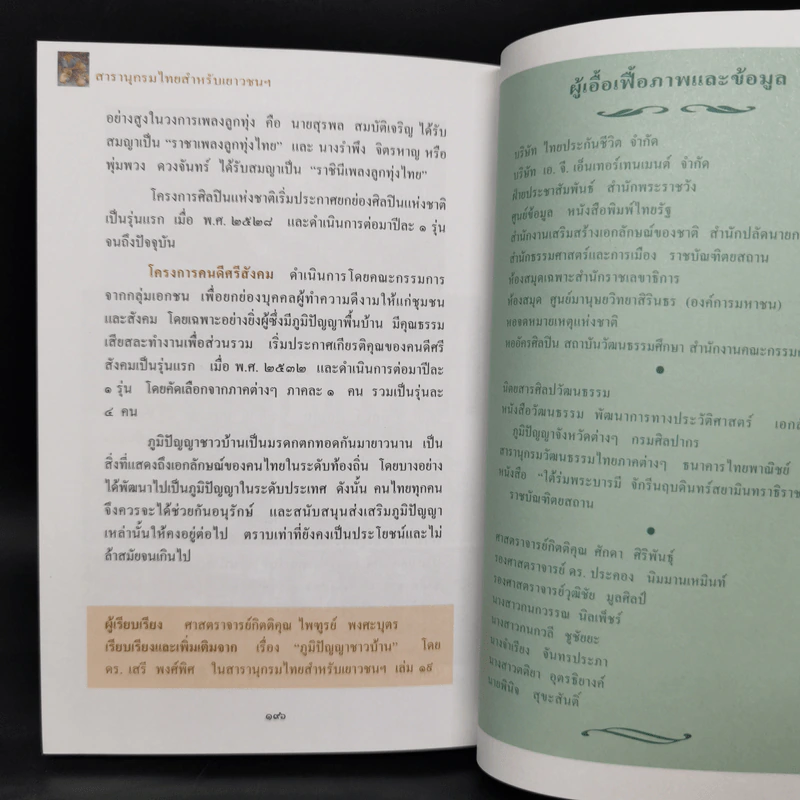 สารานุกรมไทยสำหรับเยาวชนฯ
อย่างสูงในวงการเพลงลูกทุ่ง คือ นายสุรพล สมบัติเจริญ ได้รับ
สมญาเป็น “ราชาเพลงลูกทุ่งไทย” และ นางรำพึง จิตรหาญ หรือ
พุ่มพวง ดวงจันทร์ ได้รับสมญาเป็น “ราชินีเพลงลูกทุ่งไทย”
โครงการศิลปินแห่งชาติเริ่มประกาศยกย่องศิลปินแห่งชาติ
เป็นรุ่นแรก เมื่อ พ.ศ. ๒๕๒๘ และดำเนินการต่อมาปีละ ๑ รุ่น
จนถึงปัจจุบัน
โครงการคนดีศรีสังคม ดำเนินการโดยคณะกรรมการ
จากกลุ่มเอกชน เพื่อยกย่องบุคคลผู้ทำความดีงามให้แก่ชุมชน
และสังคม โดยเฉพาะอย่างยิ่งผู้ซึ่งมีภูมิปัญญาพื้นบ้าน มีคุณธรรม
เสียสละทำงานเพื่อส่วนรวม เริ่มประกาศเกียรติคุณของคนดีศรี
สังคมเป็นรุ่นแรก เมื่อ พ.ศ. ๒๕๓๒ และดำเนินการต่อมาปีละ
๑ รุ่น โดยคัดเลือกจากภาคต่างๆ ภาคละ ๑ คน รวมเป็นรุ่นละ
๔ คน
ภูมิปัญญาชาวบ้านเป็นมรดกตกทอดกันมายาวนาน เป็น
สิ่งที่แสดงถึงเอกลักษณ์ของคนไทยในระดับท้องถิ่น โดยบางอย่าง
ได้พัฒนาไปเป็นภูมิปัญญาในระดับประเทศ ดังนั้น คนไทยทุกคน
จึงควรจะได้ช่วยกันอนุรักษ์ และสนับสนุนส่งเสริมภูมิปัญญา
เหล่านั้นให้คงอยู่ต่อไป ตราบเท่าที่ยังคงเป็นประโยชน์และไม่
ล้าสมัยจนเกินไป
ผู้เรียบเรียง ศาสตราจารย์กิตติคุณ ไพฑูรย์ พงศะบุตร
เรียบเรียงและเพิ่มเติมจาก เรื่อง “ภูมิปัญญาชาวบ้าน” โดย
ดร. เสรี พงศ์พิศ ในสารานุกรมไทยสำหรับเยาวชนฯ เล่ม ๑๙
๑๙๖
ผู้เอื้อเฟื้อภาพและข้อมูล
บริษัท ไทยประกันชีวิต จำกัด
บริษัท เอ. จี. เอ็นเทอร์เทนเมนต์ จำกัด
ฝ่ายประชาสัมพันธ์ สำนักพระราชวัง
ศูนย์ข้อมูล หนังสือพิมพ์ไทยรัฐ
สำนักงานเสริมสร้างเอกลักษณ์ของชาติ สำนักปลัดนายก
สำนักธรรมศาสตร์และการเมือง ราชบัณฑิตยสถาน
ห้องสมุดเฉพาะสำนักราชเลขาธิการ
ห้องสมุด ศูนย์มานุษยวิทยาสิรินธร (องค์การมหาชน)
หอจดหมายเหตุแห่งชาติ
หออัครศิลปิน สถาบันวัฒนธรรมศึกษา สำนักงานคณะกรรมก
นิตยสารศิลปวัฒนธรรม
หนังสือวัฒนธรรม พัฒนาการทางประวัติศาสตร์ เอกลั
ภูมิปัญญาจังหวัดต่างๆ กรมศิลปากร
สารานุกรมวัฒนธรรมไทยภาคต่างๆ ธนาคารไทยพาณิชย์
หนังสือ “ใต้ร่มพระบารมี จักรีนฤบดินทร์สยามินทราธิราช
ราชบัณฑิตยสถาน
ศาสตราจารย์กิตติคุณ ศักดา ศิริพันธุ์
รองศาสตราจารย์ ดร. ประคอง นิมมานเหมินท์
รองศาสตราจารย์วุฒิชัย มูลศิลป์
นางสาวกนกวรรณ นิลเพ็ชร์
นางสาวกนกวลี ชูชัยยะ
นางจำเรียง จันทรประภา
นางสาวตติยา อุดรธิยางค์
นายพินิจ สุขะสันติ์